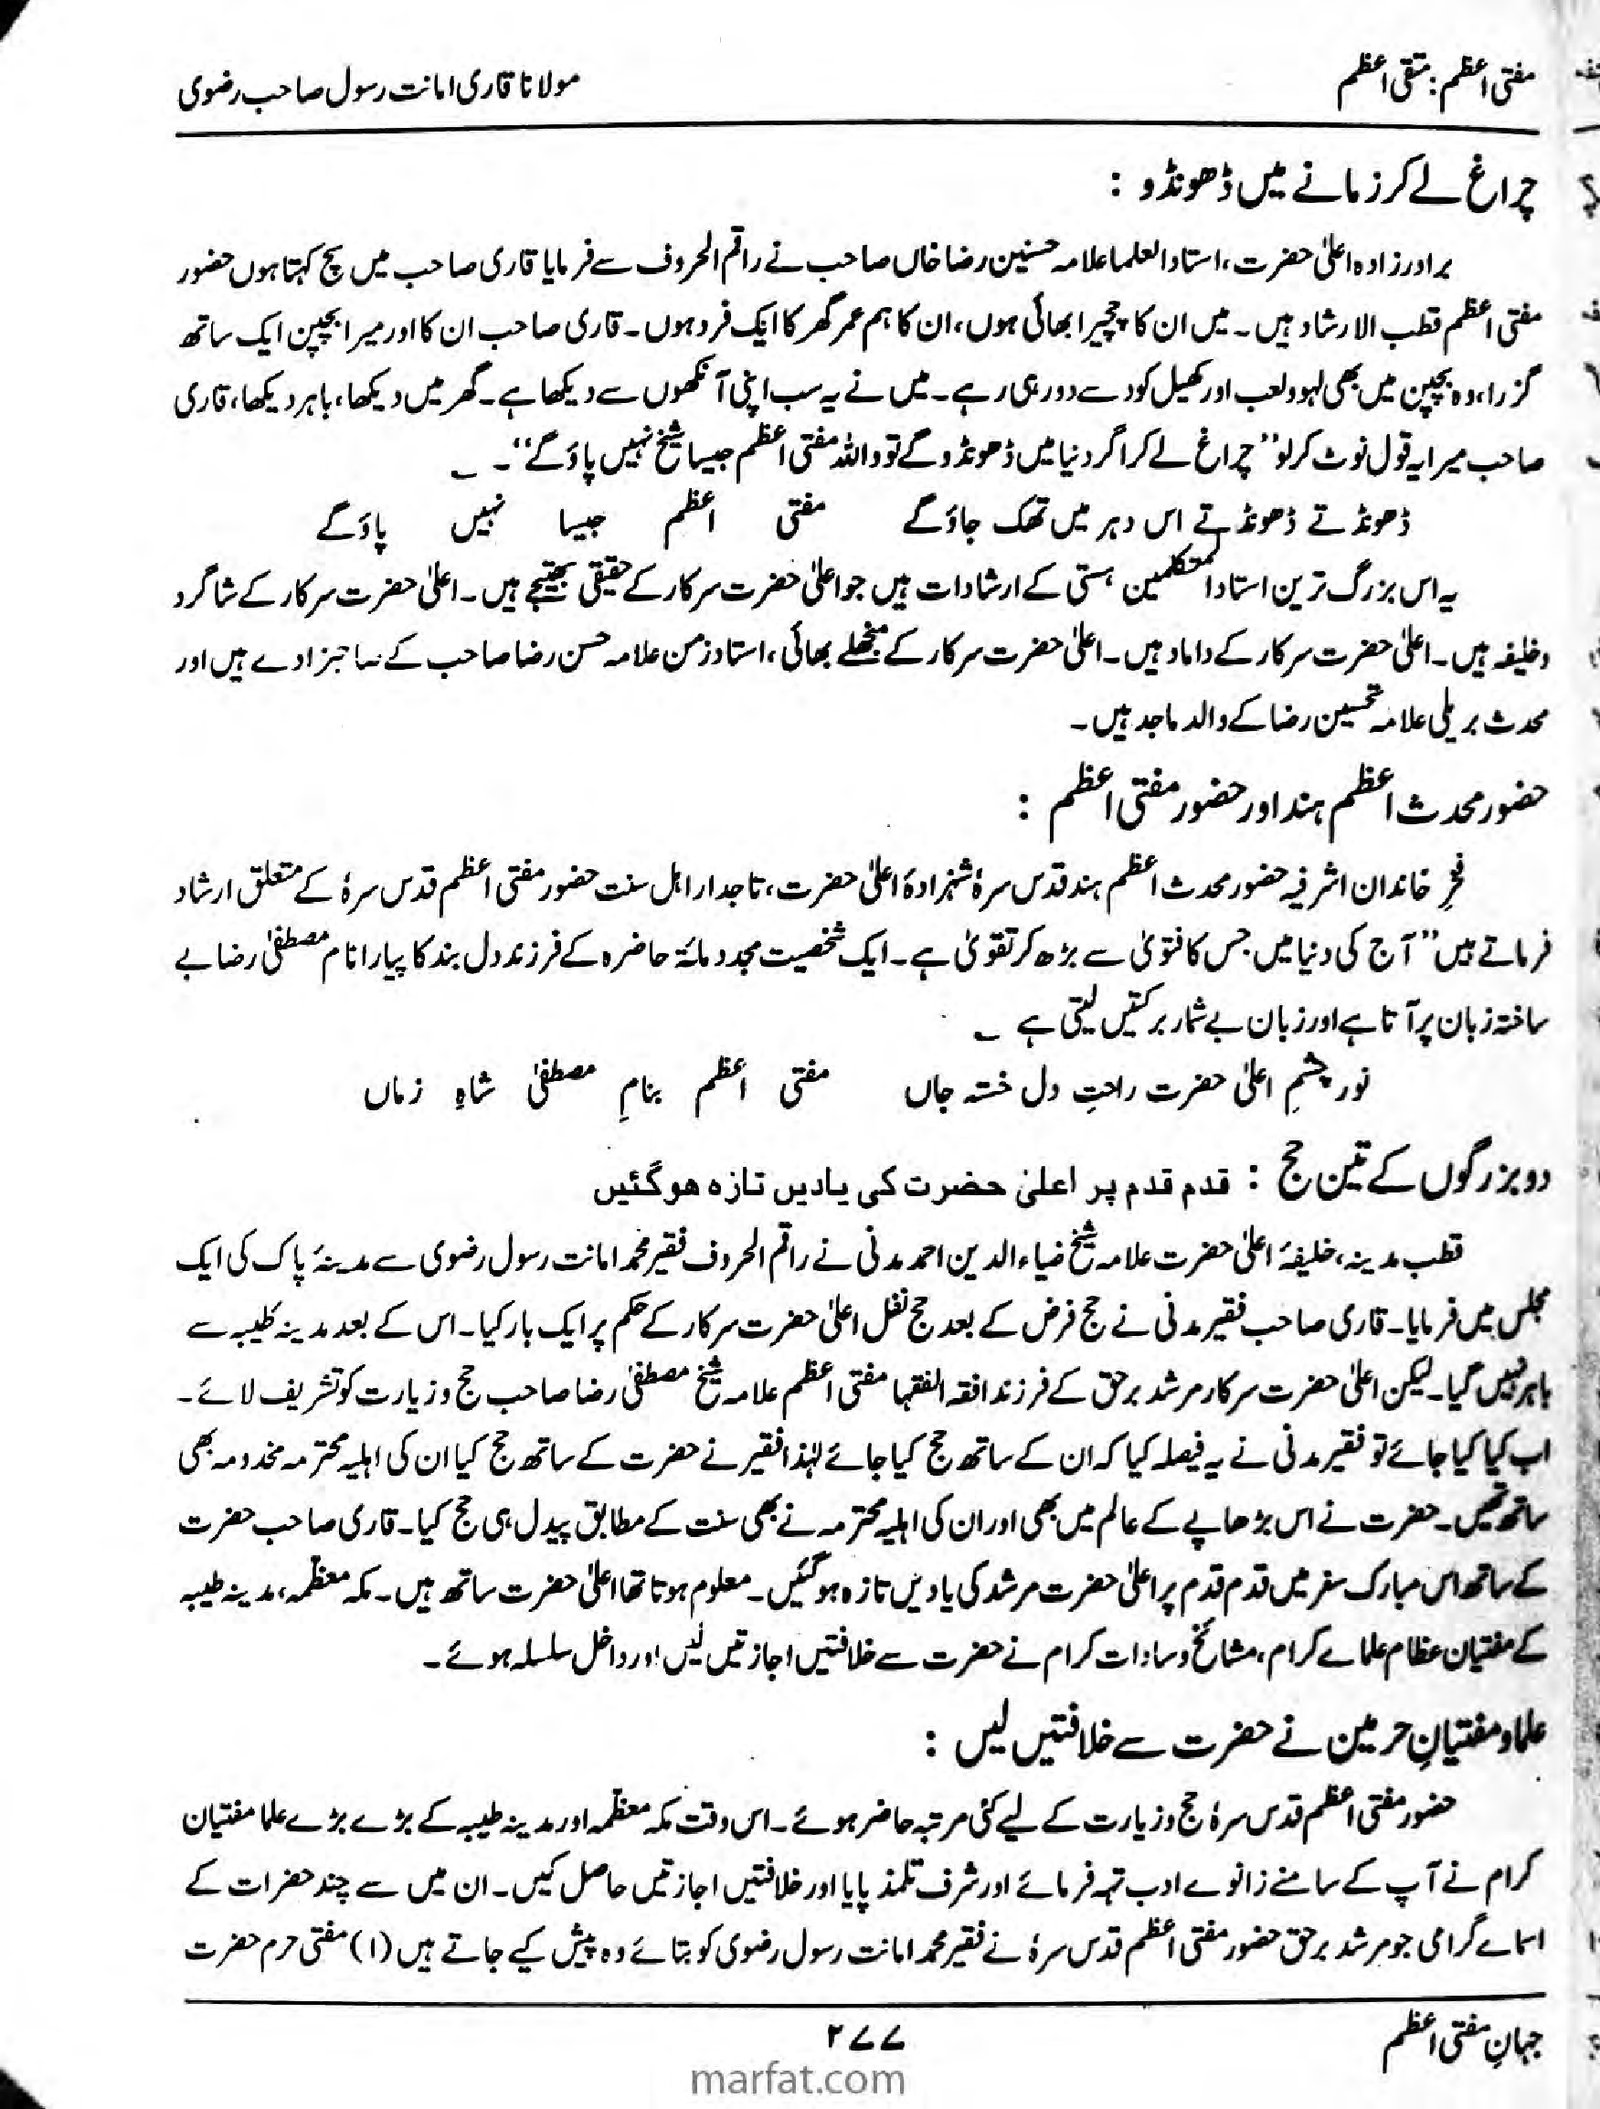 مفتی اعظم: متقی اعظم
مولانا قاری امانت رسول صاحب رضوی
چراغ لے کر زمانے میں ڈھونڈو :
برادر زادہ اعلیٰ حضرت، استاد العلما علامہ حسنین رضا خاں صاحب نے راقم الحروف سے فرمایا قاری صاحب میں سچ کہتا ہوں حضور
مفتی اعظم قطب الارشاد ہیں۔ میں ان کا چچیرا بھائی ہوں، ان کا ہم عمر گھر کا ایک فرد ہوں۔ قاری صاحب ان کا اور میرا بچپن ایک ساتھ
گزرا، وہ بچپن میں بھی لہو و لعب اور کھیل کود سے دور ہی رہے۔ میں نے یہ سب اپنی آنکھوں سے دیکھا ہے۔ گھر میں دیکھا، باہر دیکھا، قاری
صاحب میرا یہ قول نوٹ کر لو ’’چراغ لے کر اگر دنیا میں ڈھونڈو گے تو واللہ مفتی اعظم جیسا شیخ نہیں پاؤ گے‘‘۔ ؎
ڈھونڈتے ڈھونڈتے اس دہر میں تھک جاؤ گے مفتی اعظم جیسا نہیں پاؤ گے
یہ اس بزرگ ترین استاد المتکلمین ہستی کے ارشادات ہیں جو اعلیٰ حضرت سرکار کے حقیقی بھتیجے ہیں۔ اعلیٰ حضرت سرکار کے شاگرد
و خلیفہ ہیں۔ اعلیٰ حضرت سرکار کے داماد ہیں۔ اعلیٰ حضرت سرکار کے منجھلے بھائی، استاد زمن علامہ حسن رضا صاحب کے صاحبزادے ہیں اور
محدث بریلی علامہ تحسین رضا کے والد ماجد ہیں۔
حضور محدث اعظم ہند اور حضور مفتی اعظم :
فخرِ خاندان اشرفیہ حضور محدث اعظم ہند قدس سرہٗ شہزادۂ اعلیٰ حضرت، تاجدار اہل سنت حضور مفتی اعظم قدس سرہٗ کے متعلق ارشاد
فرماتے ہیں ’’آج کی دنیا میں جس کا فتویٰ سے بڑھ کر تقویٰ ہے۔ ایک شخصیت مجدد مائۃ حاضرہ کے فرزند دل بند کا پیارا نام مصطفیٰ رضا بے
ساختہ زبان پر آتا ہے اور زبان بے شمار برکتیں لیتی ہے ؎
نور چشمِ اعلیٰ حضرت راحتِ دل خستہ جاں مفتی اعظم بنامِ مصطفیٰ شاہِ زماں
دو بزرگوں کے تین حج : قدم قدم پر اعلیٰ حضرت کی یادیں تازہ ہوگئیں
قطب مدینہ، خلیفۂ اعلیٰ حضرت علامہ شیخ ضیاء الدین احمد مدنی نے راقم الحروف فقیر محمد امانت رسول رضوی سے مدینۂ پاک کی ایک
مجلس میں فرمایا۔ قاری صاحب فقیر مدنی نے حج فرض کے بعد حج نفل اعلیٰ حضرت سرکار کے حکم پر ایک بار کیا۔ اس کے بعد مدینہ طیبہ سے
باہر نہیں گیا۔ لیکن اعلیٰ حضرت سرکار مرشد برحق کے فرزند افقہ الفقہا مفتی اعظم علامہ شیخ مصطفیٰ رضا صاحب حج و زیارت کو تشریف لائے۔
اب کیا کیا جائے تو فقیر مدنی نے یہ فیصلہ کیا کہ ان کے ساتھ حج کیا جائے لہٰذا فقیر نے حضرت کے ساتھ حج کیا ان کی اہلیہ محترمہ مخدومہ بھی
ساتھ تھیں۔ حضرت نے اس بڑھاپے کے عالم میں بھی اور ان کی اہلیہ محترمہ نے بھی سنت کے مطابق پیدل ہی حج کیا۔ قاری صاحب حضرت
کے ساتھ اس مبارک سفر میں قدم قدم پر اعلیٰ حضرت مرشد کی یادیں تازہ ہوگئیں۔ معلوم ہوتا تھا اعلیٰ حضرت ساتھ ہیں۔ مکہ معظمہ، مدینہ طیبہ
کے مفتیان عظام علمائے کرام، مشائخ و سادات کرام نے حضرت سے خلافتیں اجازتیں لیں اور داخل سلسلہ ہوئے۔
علما و مفتیانِ حرمین نے حضرت سے خلافتیں لیں :
حضور مفتی اعظم قدس سرہٗ حج و زیارت کے لیے کئی مرتبہ حاضر ہوئے۔ اس وقت مکہ معظمہ اور مدینہ طیبہ کے بڑے بڑے علما مفتیان
کرام نے آپ کے سامنے زانوے ادب تہہ فرمائے اور شرف تلمذ پایا اور خلافتیں اجازتیں حاصل کیں۔ ان میں سے چند حضرات کے
اسمائے گرامی جو مرشد برحق حضور مفتی اعظم قدس سرہٗ نے فقیر محمد امانت رسول رضوی کو بتائے وہ پیش کیے جاتے ہیں (۱) مفتی حرم حضرت
جہانِ مفتی اعظم
۲۷۷
marfat.com